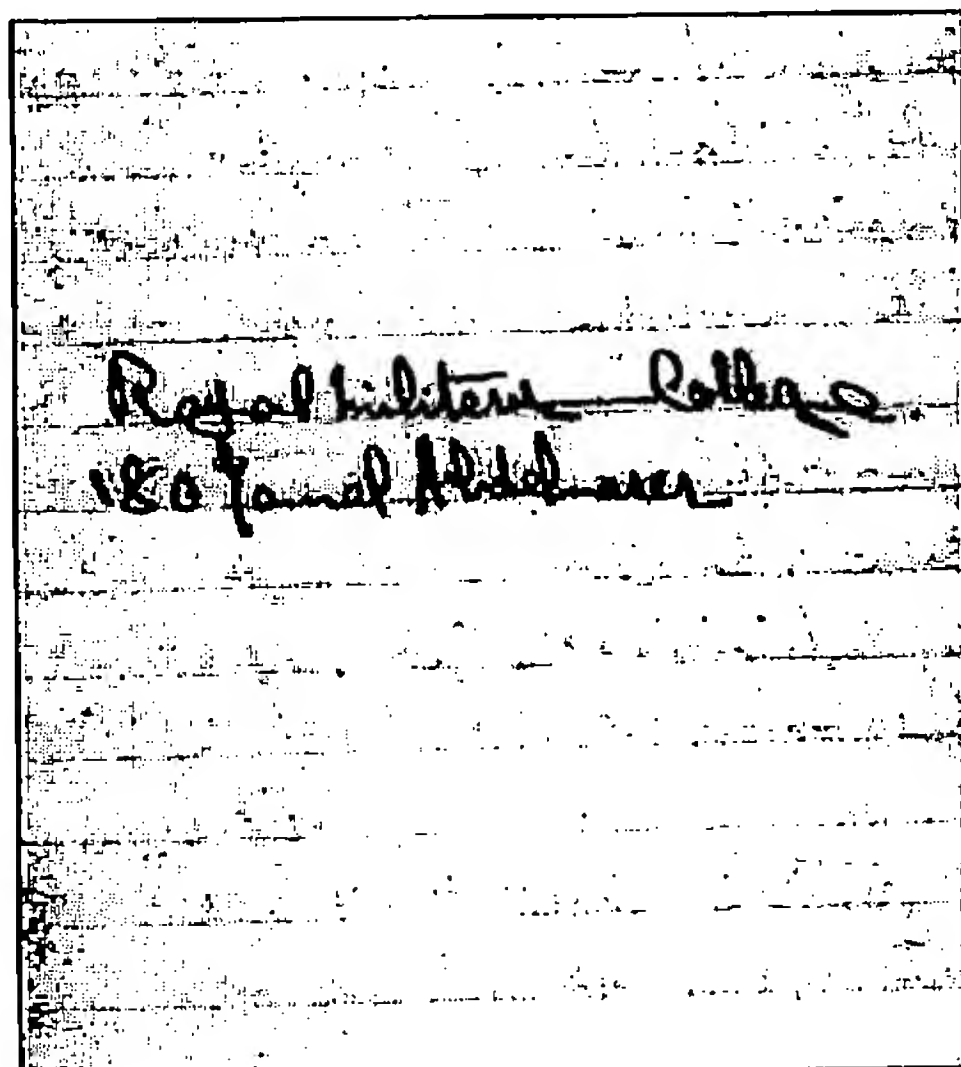 Royal Military College
180 Gamal Abdelnaser